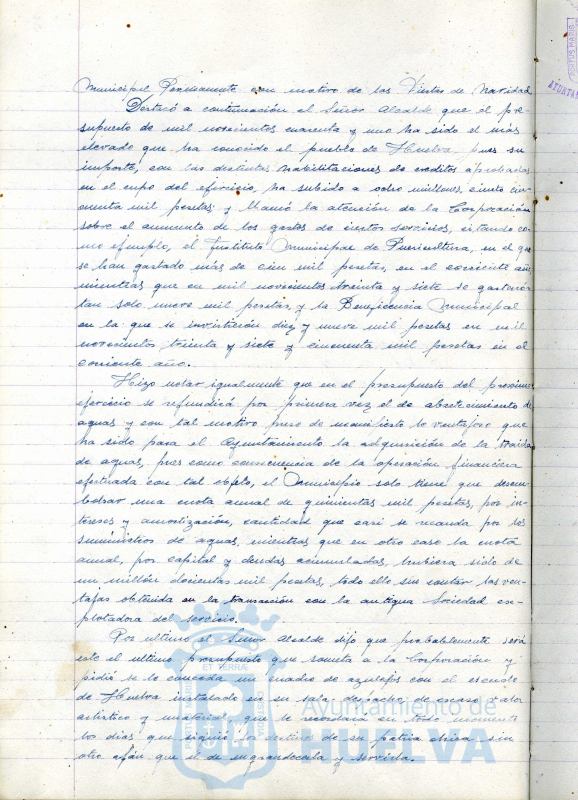 Municipal Permanente con motivo de las Fiestas de Navidad.
Destacó a continuación el Señor Alcalde que el pre-
supuesto de mil novecientos cuarenta y uno ha sido el más
elevado que ha conocido el pueblo de Huelva pues su
importe, con las distintas habilitaciones de creditos aprobadas
en el curso del ejercicio, ha subido a ocho millones, ciento cin-
cuenta mil pesetas y llamó la atención de la Corporación
sobre el aumento de los gastos de ciertos servicios, citando co-
mo ejemplo, el Instituto Municipal de Puericultura, en el que
se han gastado más de cien mil pesetas, en el corriente año
mientras que en mil novecientos treinta y siete se gastaron
tan solo nueve mil pesetas, y la Beneficencia Municipal
en la que se invirtieron diez y nueve mil pesetas en mil
novecientos treinta y siete y cincuenta mil pesetas en el
corriente año.
Hizo notar igualmente que en el presupuesto del proximo
ejercicio se refundirá por primera vez el de abastecimiento de
aguas y con tal motivo puso de manifiesto lo ventajoso que
ha sido para el Ayuntamiento la adquisición de la traida
de aguas, pues como consecuencia de la operación financiera
efectuada con tal objeto, el Municipio solo tiene que desem-
bolsar una cuota anual de quinientas mil pesetas, por in-
tereses y amortización, cantidad que casi se recauda por los
suministros de aguas, mientras que en otro caso la cuota
anual, por capital y deudas acumuladas, hubiera sido de
un millón doscientas mil pesetas, todo ello sin contar las ven-
tajas obtenida en la transacción con la antigua Sociedad ex-
plotadora del servicio.
Por ultimo el Señor Alcalde dijo que probablemente será
este el ultimo presupuesto que someta a la Corporación y
pidió se le conceda un cuadro de azulejos con el escudo
de Huelva instalado en su sala despacho de escaso valor
artistico y material, que le recordará en todo momento
los dias que siguió los destinos de su patria chica sin
otro afán que el de engrandecerla y servirla.
Ayuntamiento de
HUELVA
ET TERRA
PORTUS MARIS